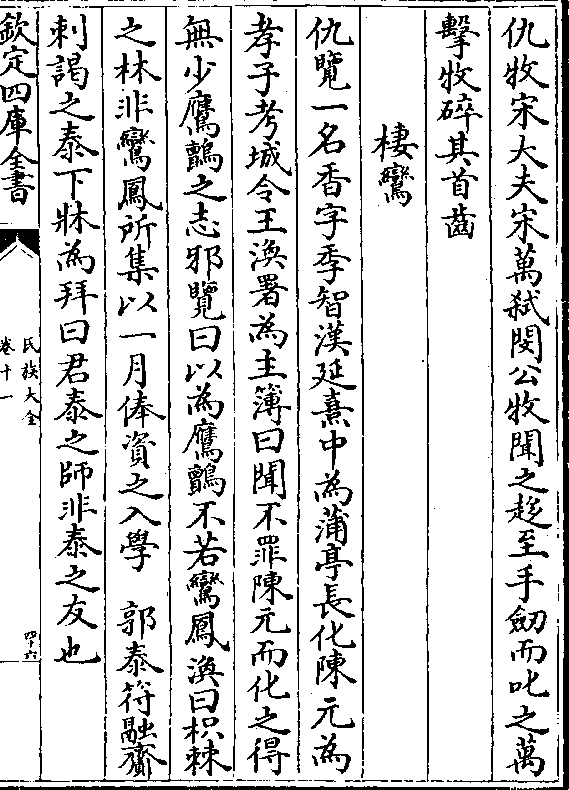 仇牧宋大夫宋萬弑閔公牧聞之趍至手劒而叱之萬
擊牧碎其首齒
棲鸞
仇覽一名香字季智漢延熹中為蒲亭長化陳元為
孝子考城令王渙署為主簿曰聞不罪陳元而化之得
無少鷹鸇之志邪覽曰以為鷹鸇不若鸞鳳渙曰枳棘
之林非鸞鳳所集以一月俸資之入學 郭泰符融齎
刺謁之泰下牀為拜曰君泰之師非泰之友也
欽定四庫全書
氏族大全
卷十一
四十六